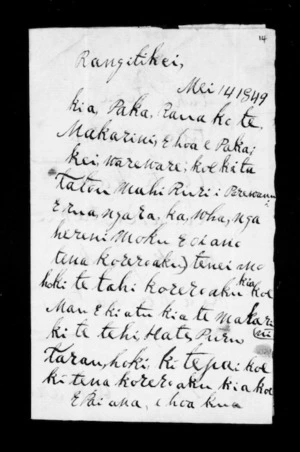 14
Rangitikei,
Mei 14 1849
kia, Paka, Rana ko te,
Makarini, E hoa e Paka,
kei, wareware, koe ki ta
Tatou Mahi Ruri i
E rua, nga Ra, ka, wha, nga
hereni Moku E ai ano
tena korero aku) tenei ano
hoki te tahi korero aku kia koe
Mau E ki atu kia te Makarini
ki te tehi, Hate, Puru
Tarau, hoki, ki te pai koe
ki tena korero aku kia koe
E Pai ana, e hoa kua